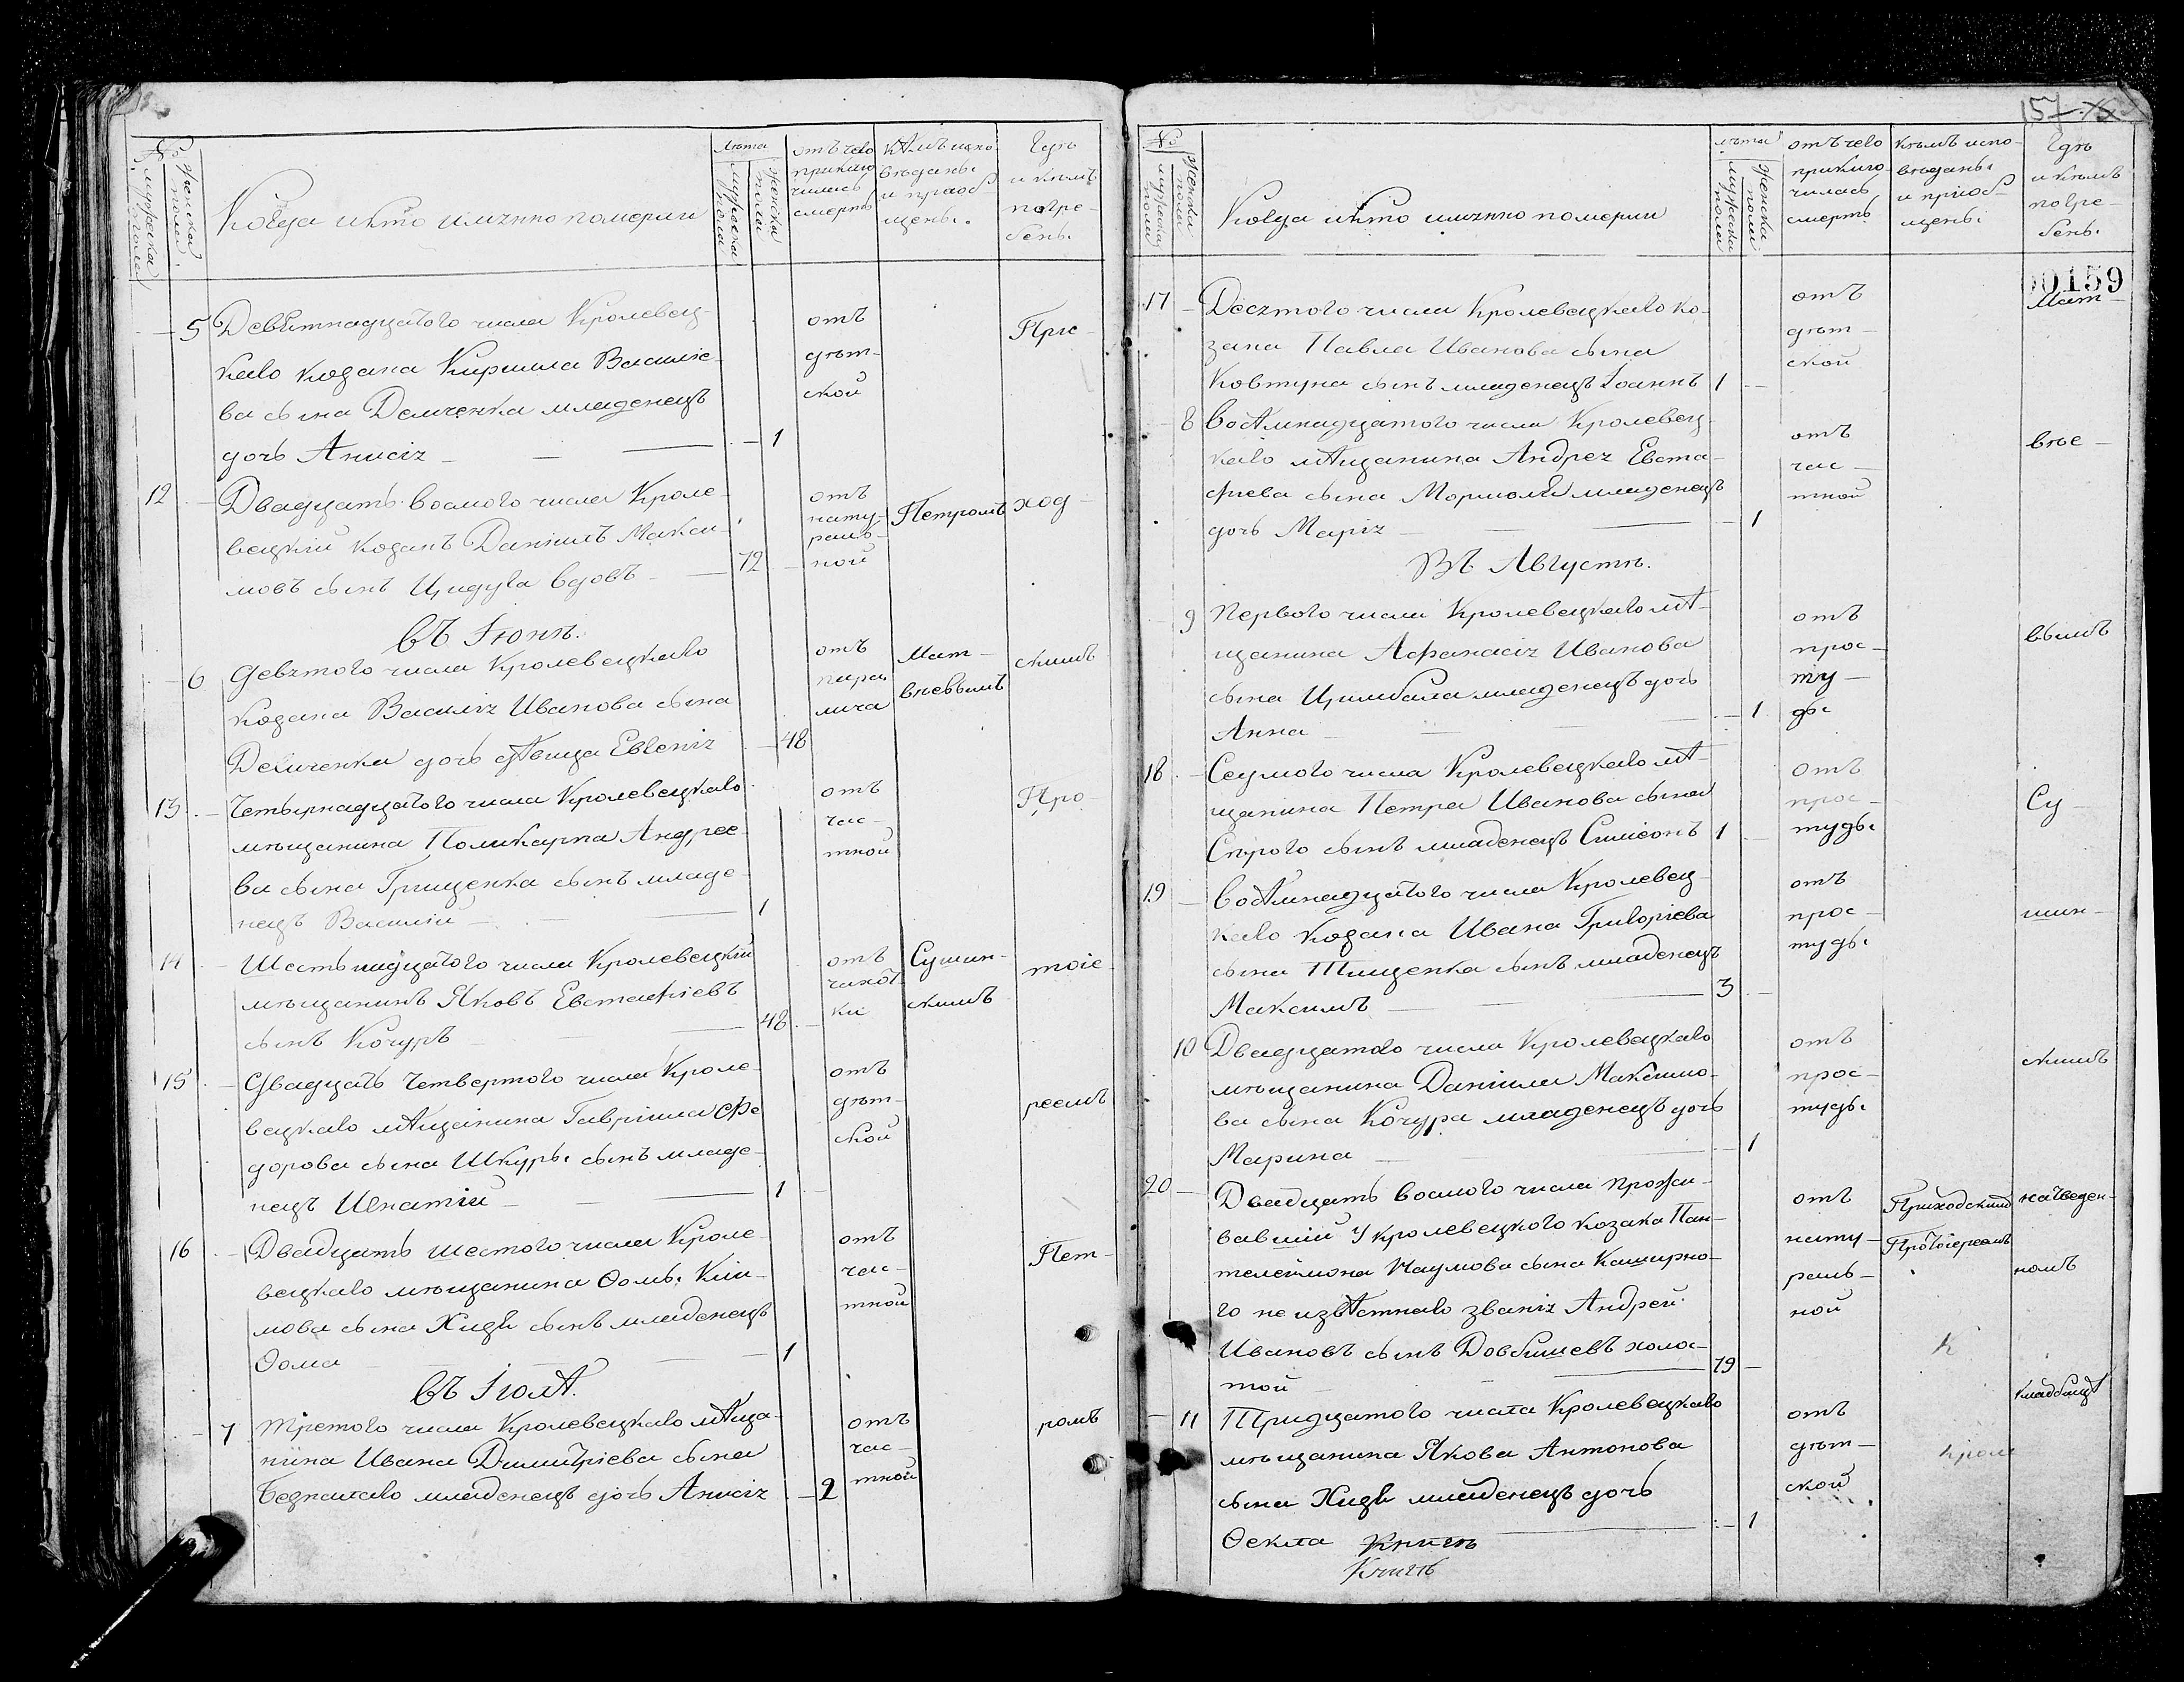 №
мужеска пола
женска пола
Когда и кто имянно померли
лѣта
мужеска пола
женска пола
отъ чего
приклю
чилась
смерть
кѣмъ испо
вѣданы
и приоб
щены.
Гдѣ
и кѣмъ
погре-
бены.
5 Девѣтнадцатого числа Кролевец-
каго козака Кирилла Василіе-
ва сына Демченка младенецъ
дочь Анисіz — 1
отъ
дѣт-
ской
При-
12 Двадцать восмого числа Кроле-
вецкій козакъ Даніилъ Макси-
мовъ сынъ Цидуга вдовъ — 72
отъ
нату-
раль-
ной
Петромъ
ход-
Въ Іюнѣ.
6 Девzтого числа Кролевецкаго
козака Василіz Иванова сына
Демченка дочь дѣвица Евгеніz — 48
отъ
пара
лича
Мат-
вѣевымъ
скимъ
13 Четырнадцатого числа Кролевецкаго
мѣщанина Поликарпа Андрее-
ва сына Грищенка сынъ младе-
нецъ Василій — 1
отъ
час-
тной
Про-
14 Шестьнадцатого числа Кролевецкій
мѣщанинъ Яковъ Евстафіевъ
сынъ Кочуръ — 48
отъ
чахот
ки
Сушин-
скимъ
тоіе-
15 Двадцать Четвертого числа Кроле-
вецкаго мѣщанина Гавріила Фе
дорова сына Шкуры сынъ младе-
нецъ Игнатій — 1
отъ
дѣт-
ской
реемъ
16 Двадцать шестого числа Кроле-
вецкаго мѣщанина Ѳомы Кли-
мова сына Хиди сынъ младенецъ
Ѳома — 1
отъ
час-
тной
Пет-
Въ Іюлѣ.
7 Третого числа Кролевецкаго мѣща-
нина Ивана Димитріева сына
младенецъ дочь Анисіz — 2
отъ
час-
тной
ромъ
157
№
мужеска пола
женска пола
Когда и кто имянно померли
лѣта
мужеска пола
женска пола
отъ чего
приклю-
чилась
смерть
кѣмъ испо-
вѣданы
и приоб-
щены
Гдѣ
и кѣмъ
погре-
бены.
00159
17 Десzтого числа Кролевецкаго ко-
зака Павла Иванова сына
Ковтуна сынъ младенецъ Іоаннъ 1
отъ
дѣт-
ской
Мат-
8 Восѣмнадцатого числа Кролевец-
каго мѣщанина Андреz Евста-
фиева сына младенецъ
дочь Маріz — 1
отъ
час-
тной
вѣе-
Въ Августѣ.
9 Первого числа Кролевецкаго мѣ-
щанина Афанасіz Иванова
сына Цимбала младенецъ дочь
Анна — 1
отъ
прос-
ту-
ды
вымъ
18 Седмого числа Кролевецкаго мѣ-
щанина Петра Иванова сына
Сѣрого сынъ младенецъ Симеонъ 1
отъ
прос-
туды
Су-
19 Восѣмнадцатого числа Кролевец-
каго козака Ивана Григоріева
сына Тищенка сынъ младенецъ
Максимъ — 3
отъ
прос-
туды
шин-
10 Двадцатого числа Кролевецкаго
мѣщанина Даніила Максимо-
ва сына Кочура младенецъ дочь
Марина — 1
отъ
прос-
туды
скимъ
20 Двадцать восмого числа прожи-
вавшій у кролевецкого козака Пан-
телеймона Наумова сына Каширно-
го не извѣстнаго званіz Андрей
Ивановъ сынъ Довбишевъ холос-
той — 79
отъ
нату-
раль-
ной
Приходскимъ
Протоіереемъ
на отведен-
номъ
11 Тридцатого числа Кролевецкаго
мѣщанина Якова Антонова
сына Хиди младенецъ дочь
Ѳекла — 1
отъ
дѣт-
ской
кладбищѣ